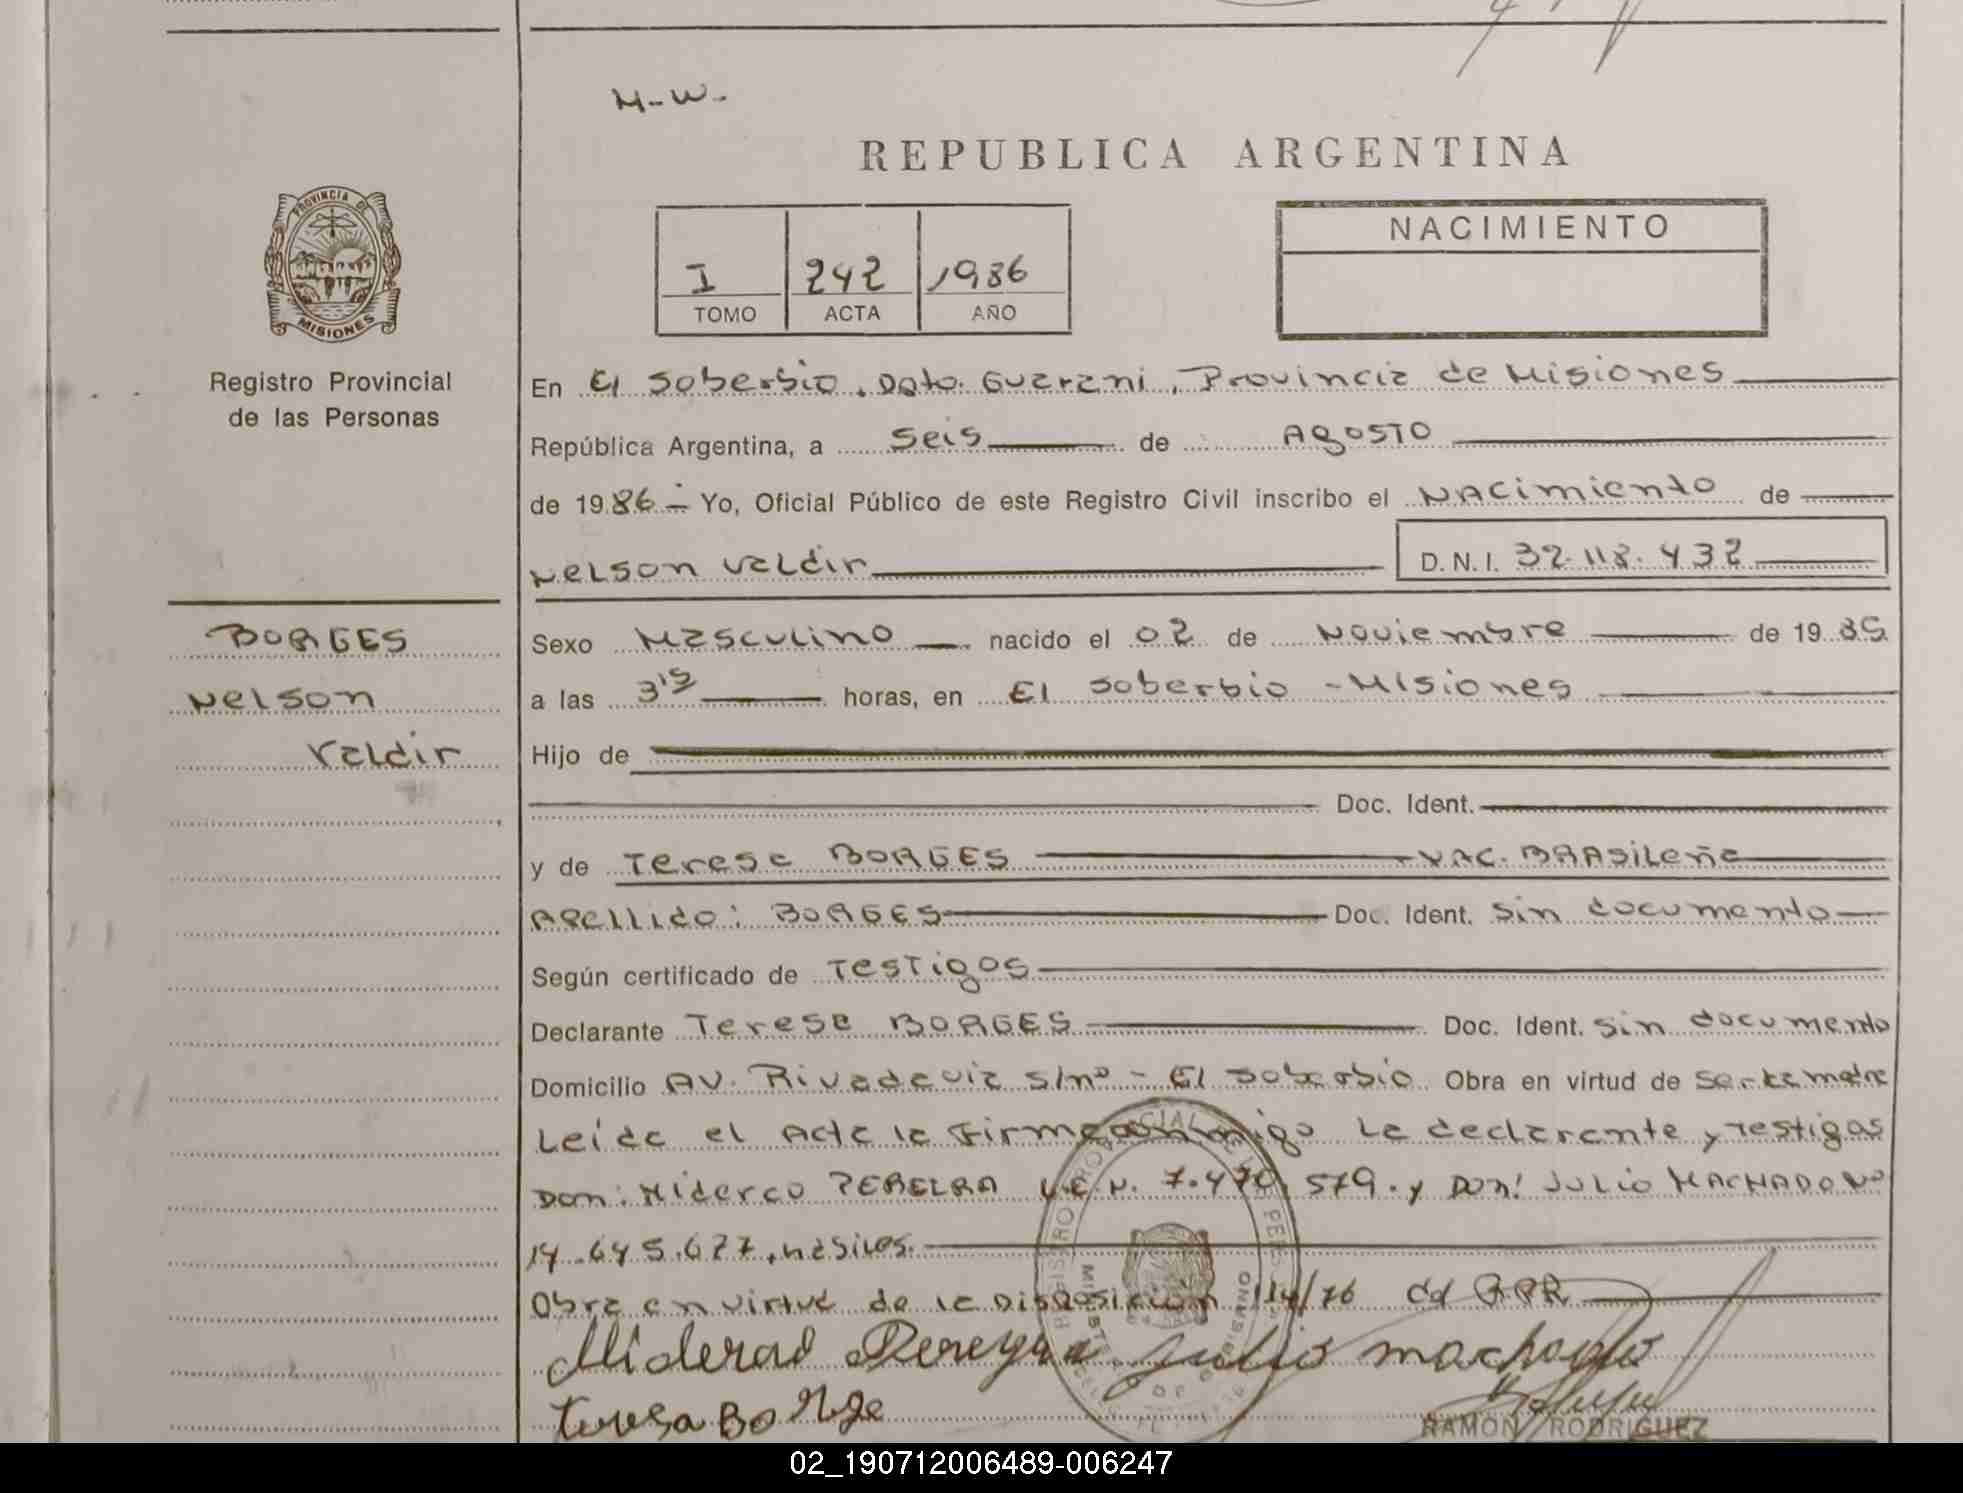 M-W-
REPUBLICA ARGENTINA
PROVINCIA DE
MISIONES
Registro Provincial
de las Personas
I 242 1986
TOMO ACTA AÑO
NACIMIENTO
En El Soberbio, Dpto. Guarani, Provincia de Misiones
República Argentina, a seis de Agosto
de 1986 - Yo, Oficial Público de este Registro Civil inscribo el Nacimiento de
Nelson Valdir D.N.I. 32.118.432
BORGES
Nelson
Valdir
Sexo Masculino nacido el 02 de Noviembre de 1985
a las 3'15 horas, en El Soberbio - Misiones
Hijo de
Doc. Ident.
y de Teresa BORGES NAC. BRASileña
Apellido: BORGES Doc. Ident. sin documento
Según certificado de Testigos
Declarante Teresa BORGES Doc. Ident. sin documento
Domicilio AV. Rivadavia s/nº - El Soberbio Obra en virtud de ser la madre
Leída el Acta la firma conmigo la declarante y testigos
Don: Miderco PEREIRA 7.470.579. y Don: Julio MACHADO Nº
14.645.677
Obra en virtud de la Disposicion 114/76 del RPP
Miderad Pereyra Julio machado
teresa Borge
RAMON RODRIGUEZ
02_190712006489-006247